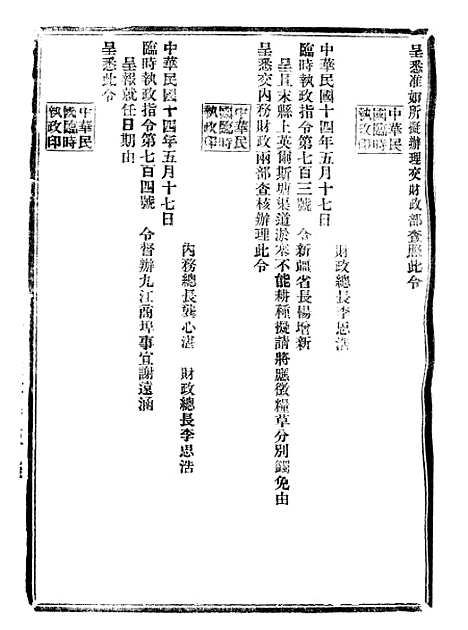 呈悉准如所擬辦理交財政部查照此令
中華民國臨時執政印
財政總長李思浩
中華民國十四年五月十七日
臨時執政指令第七百三號　令新疆省長楊增新
呈且末縣上英爾斯塘渠道淤塞不能耕種擬請將應徵糧草分別蠲免由
呈悉交內務財政兩部查核辦理此令
中華民國臨時執政印
內務總長龔心湛　財政總長李思浩
中華民國十四年五月十七日
臨時執政指令第七百四號　令督辦九江商埠事宜謝遠涵
呈報就任日期由
呈悉此令
中華民國臨時執政印